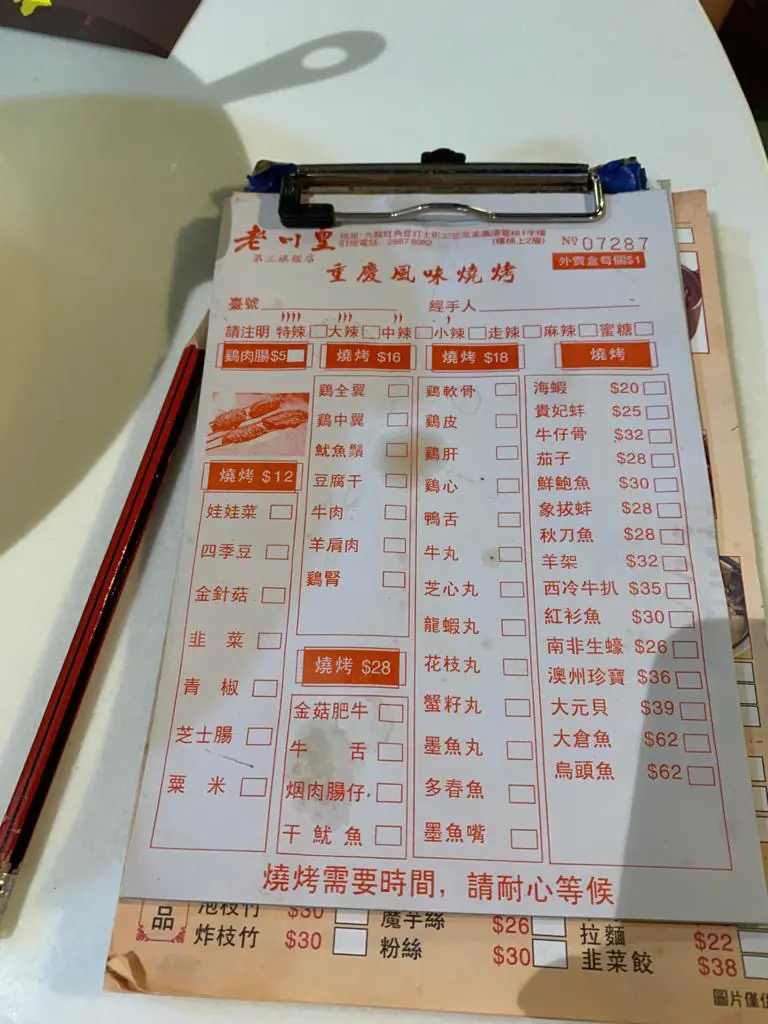 老川皇
第三旗艦店
訂座電話 2887 8982
(樓梯上2層)
Nº 07287
外賣盒每個$1
重慶風味燒烤
臺號
經手人
請注明 特辣 大辣 中辣 小辣 走辣 麻辣 蜜糖
鷄肉腸$5
燒烤 $12
娃娃菜
四季豆
金針菇
韭 菜
青 椒
芝士腸
粟 米
燒烤 $16
鷄全翼
鷄中翼
魷魚鬚
豆腐干
牛肉
羊肩肉
鷄腎
燒烤 $28
金菇肥牛
牛 舌
烟肉腸仔
干魷魚
燒烤 $18
鷄軟骨
鷄皮
鷄肝
鷄心
鴨舌
牛丸
芝心丸
龍蝦丸
花枝丸
蟹籽丸
墨魚丸
多春魚
墨魚嘴
燒烤
海蝦 $20
貴妃蚌 $25
牛仔骨 $32
茄子 $28
鮮鮑魚 $30
象拔蚌 $28
秋刀魚 $28
羊架 $32
西冷牛扒 $35
紅衫魚 $30
南非生蠔 $26
澳州珍寶 $36
大元貝 $39
大倉魚 $62
烏頭魚 $62
燒烤需要時間，請耐心等候
品
枝竹 $30
炸枝竹 $30
魔芋絲 $26
粉絲 $30
拉麵 $22
韭菜餃 $38
圖片僅